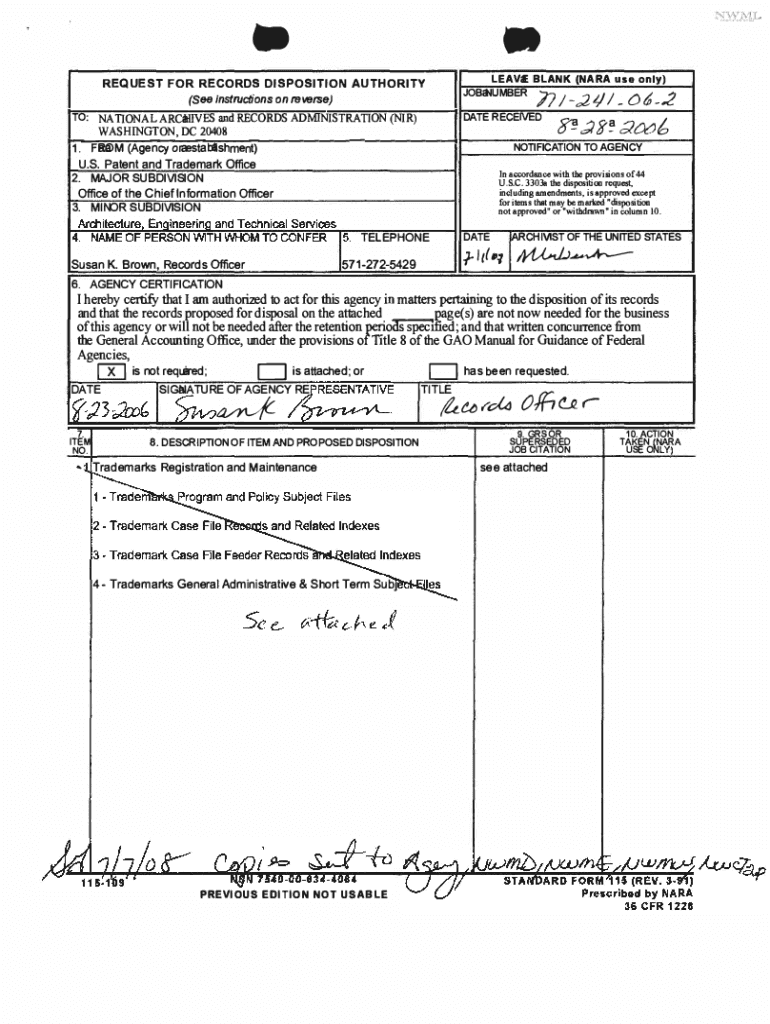 NWML
REQUEST FOR RECORDS DISPOSITION AUTHORITY
(See Instructions on reverse)
LEAVE BLANK (NARA use only)
JOB NUMBER
N1-241-06-2
TO: NATIONAL ARCHIVES and RECORDS ADMINISTRATION (NIR)
WASHINGTON, DC 20408
DATE RECEIVED
8-28-2006
1. FROM (Agency or establishment)
U.S. Patent and Trademark Office
NOTIFICATION TO AGENCY
2. MAJOR SUBDIVISION
Office of the Chief Information Officer
3. MINOR SUBDIVISION
Architecture, Engineering and Technical Services
In accordance with the provisions of 44
U.S.C. 3303a the disposition request,
including amendments, is approved except
for items that may be marked "disposition
not approved" or "withdrawn" in column 10.
4. NAME OF PERSON WITH WHOM TO CONFER
Susan K. Brown, Records Officer
5. TELEPHONE
571-272-5429
DATE
ARCHIVIST OF THE UNITED STATES
6. AGENCY CERTIFICATION
I hereby certify that I am authorized to act for this agency in matters pertaining to the disposition of its records
and that the records proposed for disposal on the attached ______page(s) are not now needed for the business
of this agency or will not be needed after the retention periods specified; and that written concurrence from
the General Accounting Office, under the provisions of Title 8 of the GAO Manual for Guidance of Federal
Agencies,
X is not required; is attached; or has been requested.
DATE
8-23-2006
SIGNATURE OF AGENCY REPRESENTATIVE
Susan K Brown
TITLE
Records Officer
7.
ITEM
NO.
8. DESCRIPTION OF ITEM AND PROPOSED DISPOSITION
9. GRS OR
SUPERSEDED
JOB CITATION
10. ACTION
TAKEN (NARA
USE ONLY)
1 Trademarks Registration and Maintenance
see attached
1 - Trademarks Program and Policy Subject Files
2 - Trademark Case File Records and Related Indexes
3 - Trademark Case File Feeder Records and Related Indexes
4 - Trademarks General Administrative & Short Term Subject Files
See attached
7/7/08 Copies sent to Agency, NWMD, NWME, NWMW,
115-109
NSN 7540-00-634-4064
PREVIOUS EDITION NOT USABLE
STANDARD FORM 115 (REV. 3-91)
Prescribed by NARA
36 CFR 1228